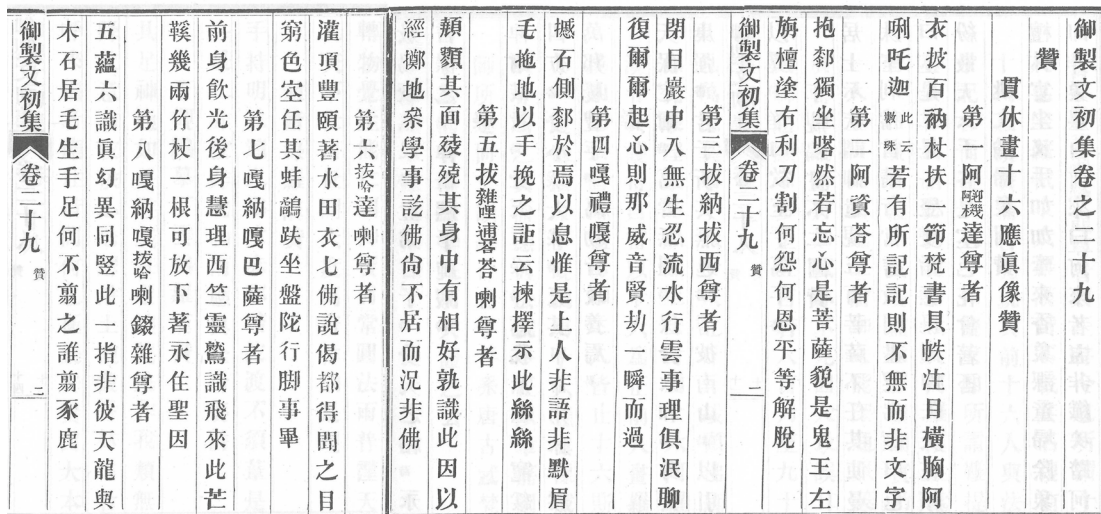 御製文初集卷之二十九
贊
貫休畫十六應眞像贊
第一阿迎機達尊者
衣披百衲杖扶一笻梵書貝帙注目橫胸阿
唎吒迦此云數珠若有所記記則不無而非文字
第二阿資荅尊者
抱膝獨坐嗒然若忘心是菩薩貌是鬼王左
旃檀塗右利刀割何怨何恩平等解脫
御製文初集 卷二十九 贊 一
第三拔納拔西尊者
閉目巖中入無生忍流水行雲事理俱泯聊
復爾爾起心則那威音賢劫一瞬而過
第四嘎禮嘎尊者
撼石側膝於焉以息惟是上人非語非默眉
毛拖地以手挽之詎云揀擇示此絲絲
第五拔雜哩逋荅喇尊者
顙其面 其身中有相好孰識此因以
經擲地叅學事訖佛尙不居而況非佛
第六拔哈達喇尊者
灌頂豐頤著水田衣七佛說偈都得聞之目
窮色空任其蚌鷸趺坐盤陀行脚事畢
第七嘎納嘎巴薩尊者
前身飮光後身慧理西竺靈鷲識飛來此芒
鞵幾兩竹杖一根可放下著永住聖因
第八嘎納嘎拔哈喇錣雜尊者
五蘊六識眞幻異同竪此一指非彼天龍與
木石居毛生手足何不翦之誰翦豕鹿
御製文初集 卷二十九 贊 二